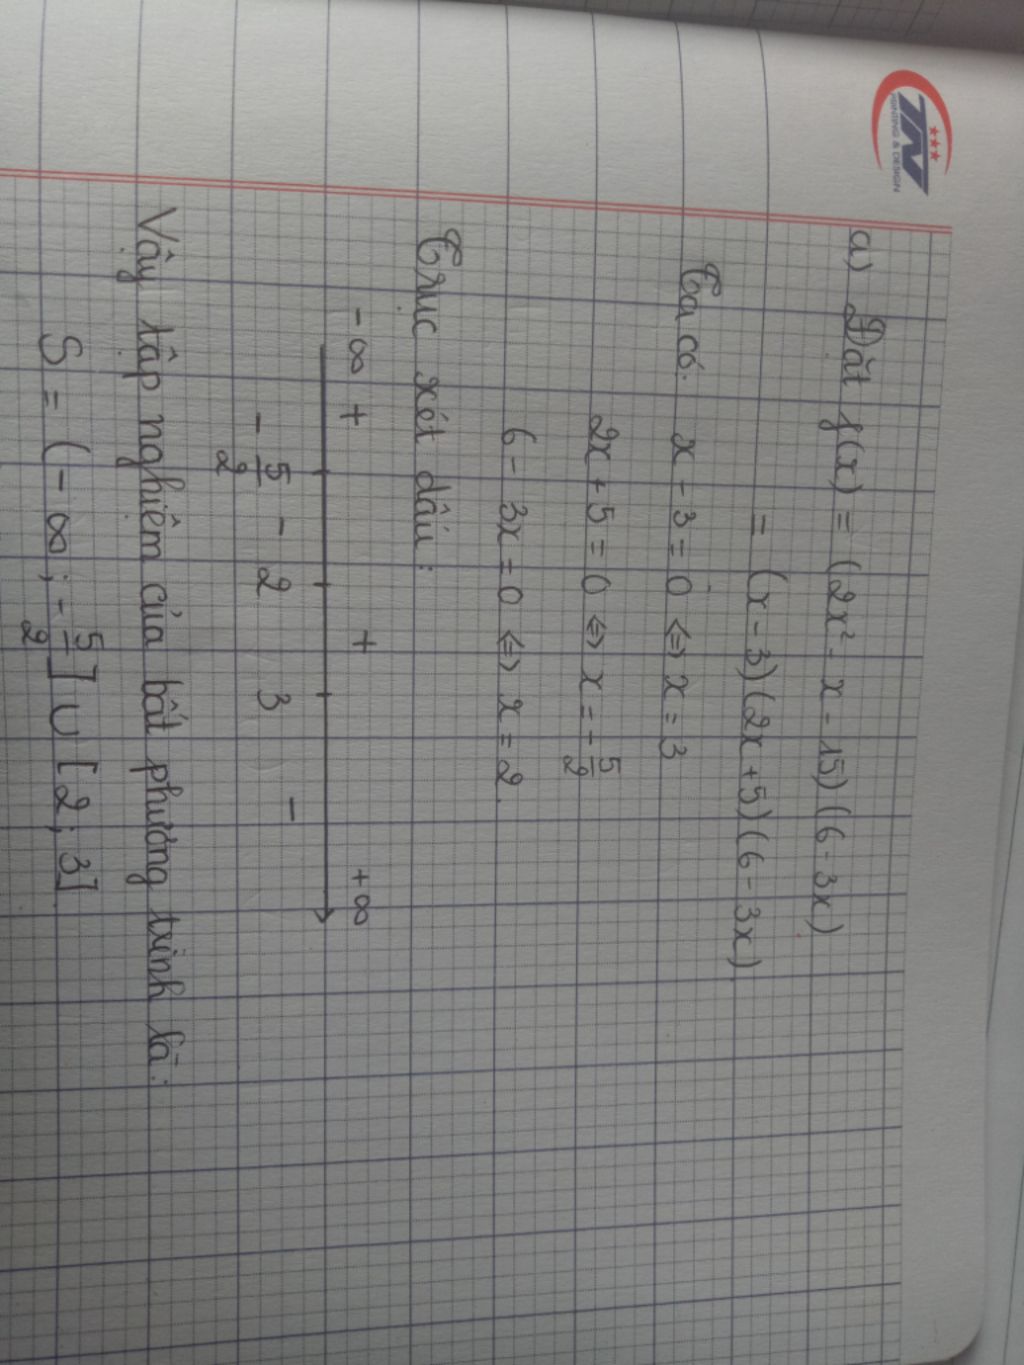 TN
PRINTING & DESIGN
a) Đặt f(x) = (2x² - x - 15)(6 - 3x)
= (x - 3)(2x + 5)(6 - 3x)
Ta có: x - 3 = 0 ⇔ x = 3
2x + 5 = 0 ⇔ x = -5/2
6 - 3x = 0 ⇔ x = 2.
Trục xét dấu:
-∞ + + +∞
-5/2 - 2 3 -
Vậy tập nghiệm của bất phương trình là:
S = (-∞; -5/2] ∪ [2; 3].